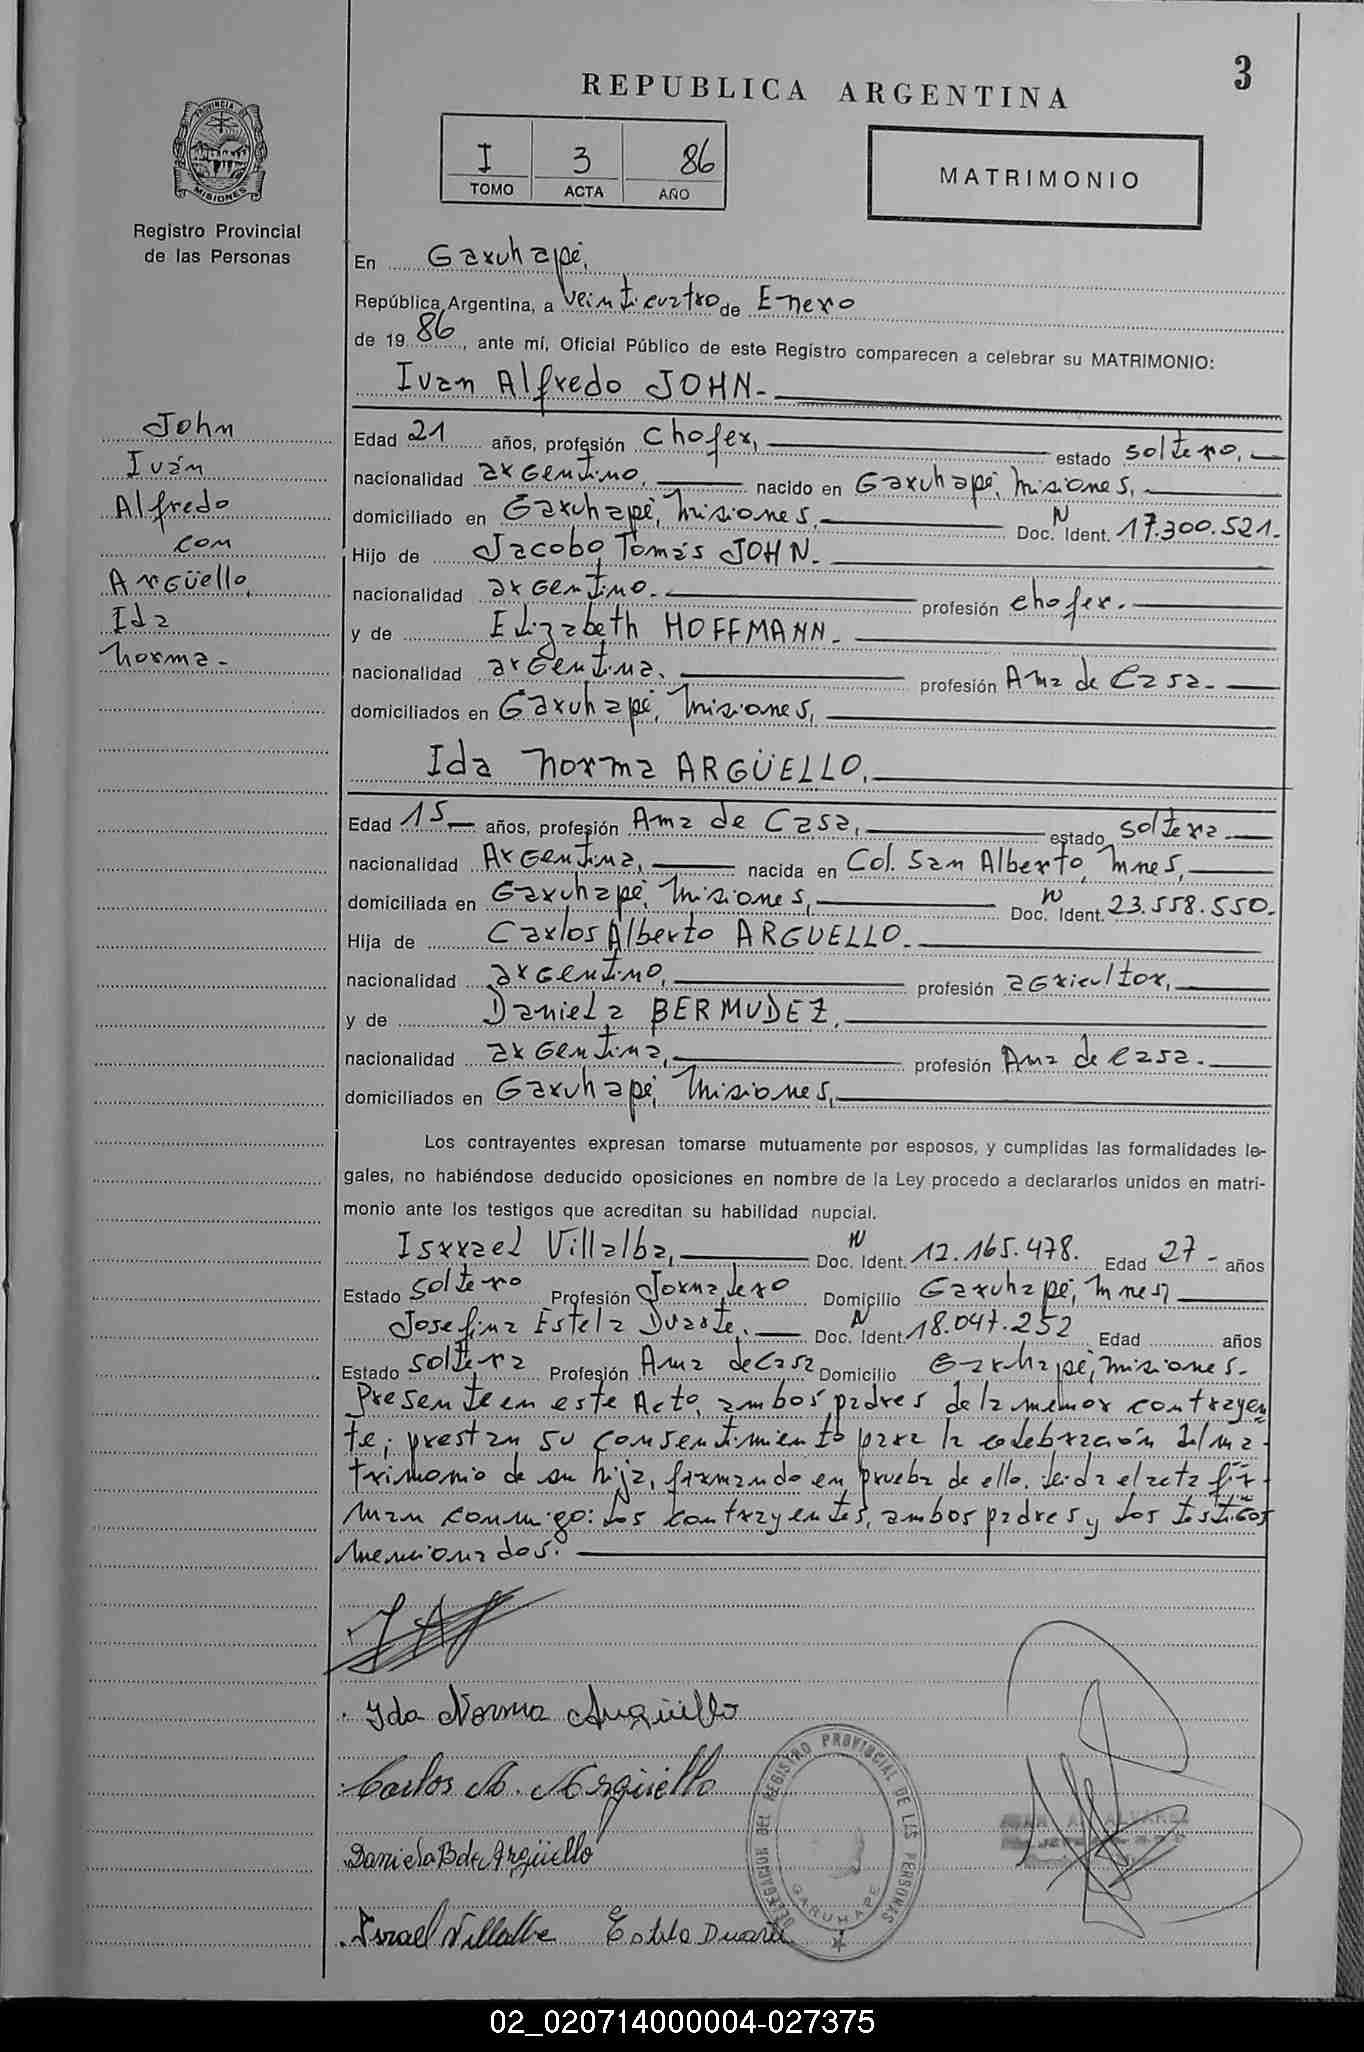 3
REPUBLICA ARGENTINA
I 3 86
TOMO ACTA AÑO
MATRIMONIO
PROVINCIA DE MISIONES
Registro Provincial
de las Personas
En Garuhapé,
República Argentina, a veinticuatro de Enero
de 19 86, ante mí, Oficial Público de este Registro comparecen a celebrar su MATRIMONIO:
Ivan Alfredo JOHN.-
John
Iván
Alfredo
con
Argüello,
Ida
Norma.-
Edad 21 años, profesión chofer, estado soltero,
nacionalidad argentino, nacido en Garuhapé, Misiones,
domiciliado en Garuhapé, Misiones, Doc. N Ident. 17.300.521.-
Hijo de Jacobo Tomás JOHN.-
nacionalidad argentino.- profesión chofer.-
y de Elizabeth HOFFMANN.-
nacionalidad argentina. profesión Ama de Casa.-
domiciliados en Garuhapé, Misiones,
Ida Norma ARGÜELLO,
Edad 15 años, profesión Ama de Casa, estado soltera
nacionalidad Argentina, nacida en Col. San Alberto, Mnes,
domiciliada en Garuhapé, Misiones, Doc. N Ident. 23.558.550.-
Hija de Carlos Alberto ARGUELLO.
nacionalidad argentino, profesión agricultor,
y de Daniela BERMUDEZ,
nacionalidad argentina, profesión Ama de casa.
domiciliados en Garuhapé, Misiones,
Los contrayentes expresan tomarse mutuamente por esposos, y cumplidas las formalidades le-
gales, no habiéndose deducido oposiciones en nombre de la Ley procedo a declararlos unidos en matri-
monio ante los testigos que acreditan su habilidad nupcial.
Isrrael Villalba, Doc. N Ident. 12.165.478. Edad 27 - años
Estado soltero Profesión Jornalero Domicilio Garuhapé, Mnes,
Josefina Estela Duarte, Doc. N Ident. 18.047.252 Edad años
Estado soltera Profesión Ama de Casa Domicilio Garuhapé, Misiones.-
Presente en este Acto, ambos padres de la menor contrayen
te, prestan su consentimiento para la celebración del ma-
trimonio de su hija, firmando en prueba de ello. Leida el acta fir-
man conmigo: los contrayentes, ambos padres y los testigos
mencionados.
Ida Norma Argüello
Carlos A. Argüello
Daniela B de Argüello
Israel Villalba Estela Duarte
DELEGACION DEL REGISTRO PROVINCIAL DE LAS PERSONAS
GARUHAPE
ALVAREZ
02_020714000004-027375